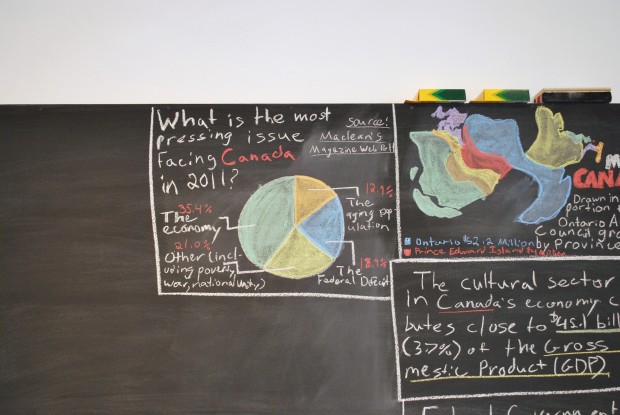 What is the most
pressing issue
Facing Canada
in 2011?
Source:
Maclean's
Magazine Web Poll
35.4%
The
economy
21.0%
Other (incl-
uding poverty,
war, national unity)
12.9%
The
aging pop-
ulation
18.9%
The
Federal Deficit
CANA
Drawn in
portion
Ontario A
Council
by Province
Ontario $2.2 Million
Prince Edward Island
The cultural sector
in Canada's economy c
butes close to $45.1 bill
(3.7%) of the Gross
mestic Product (GDP)